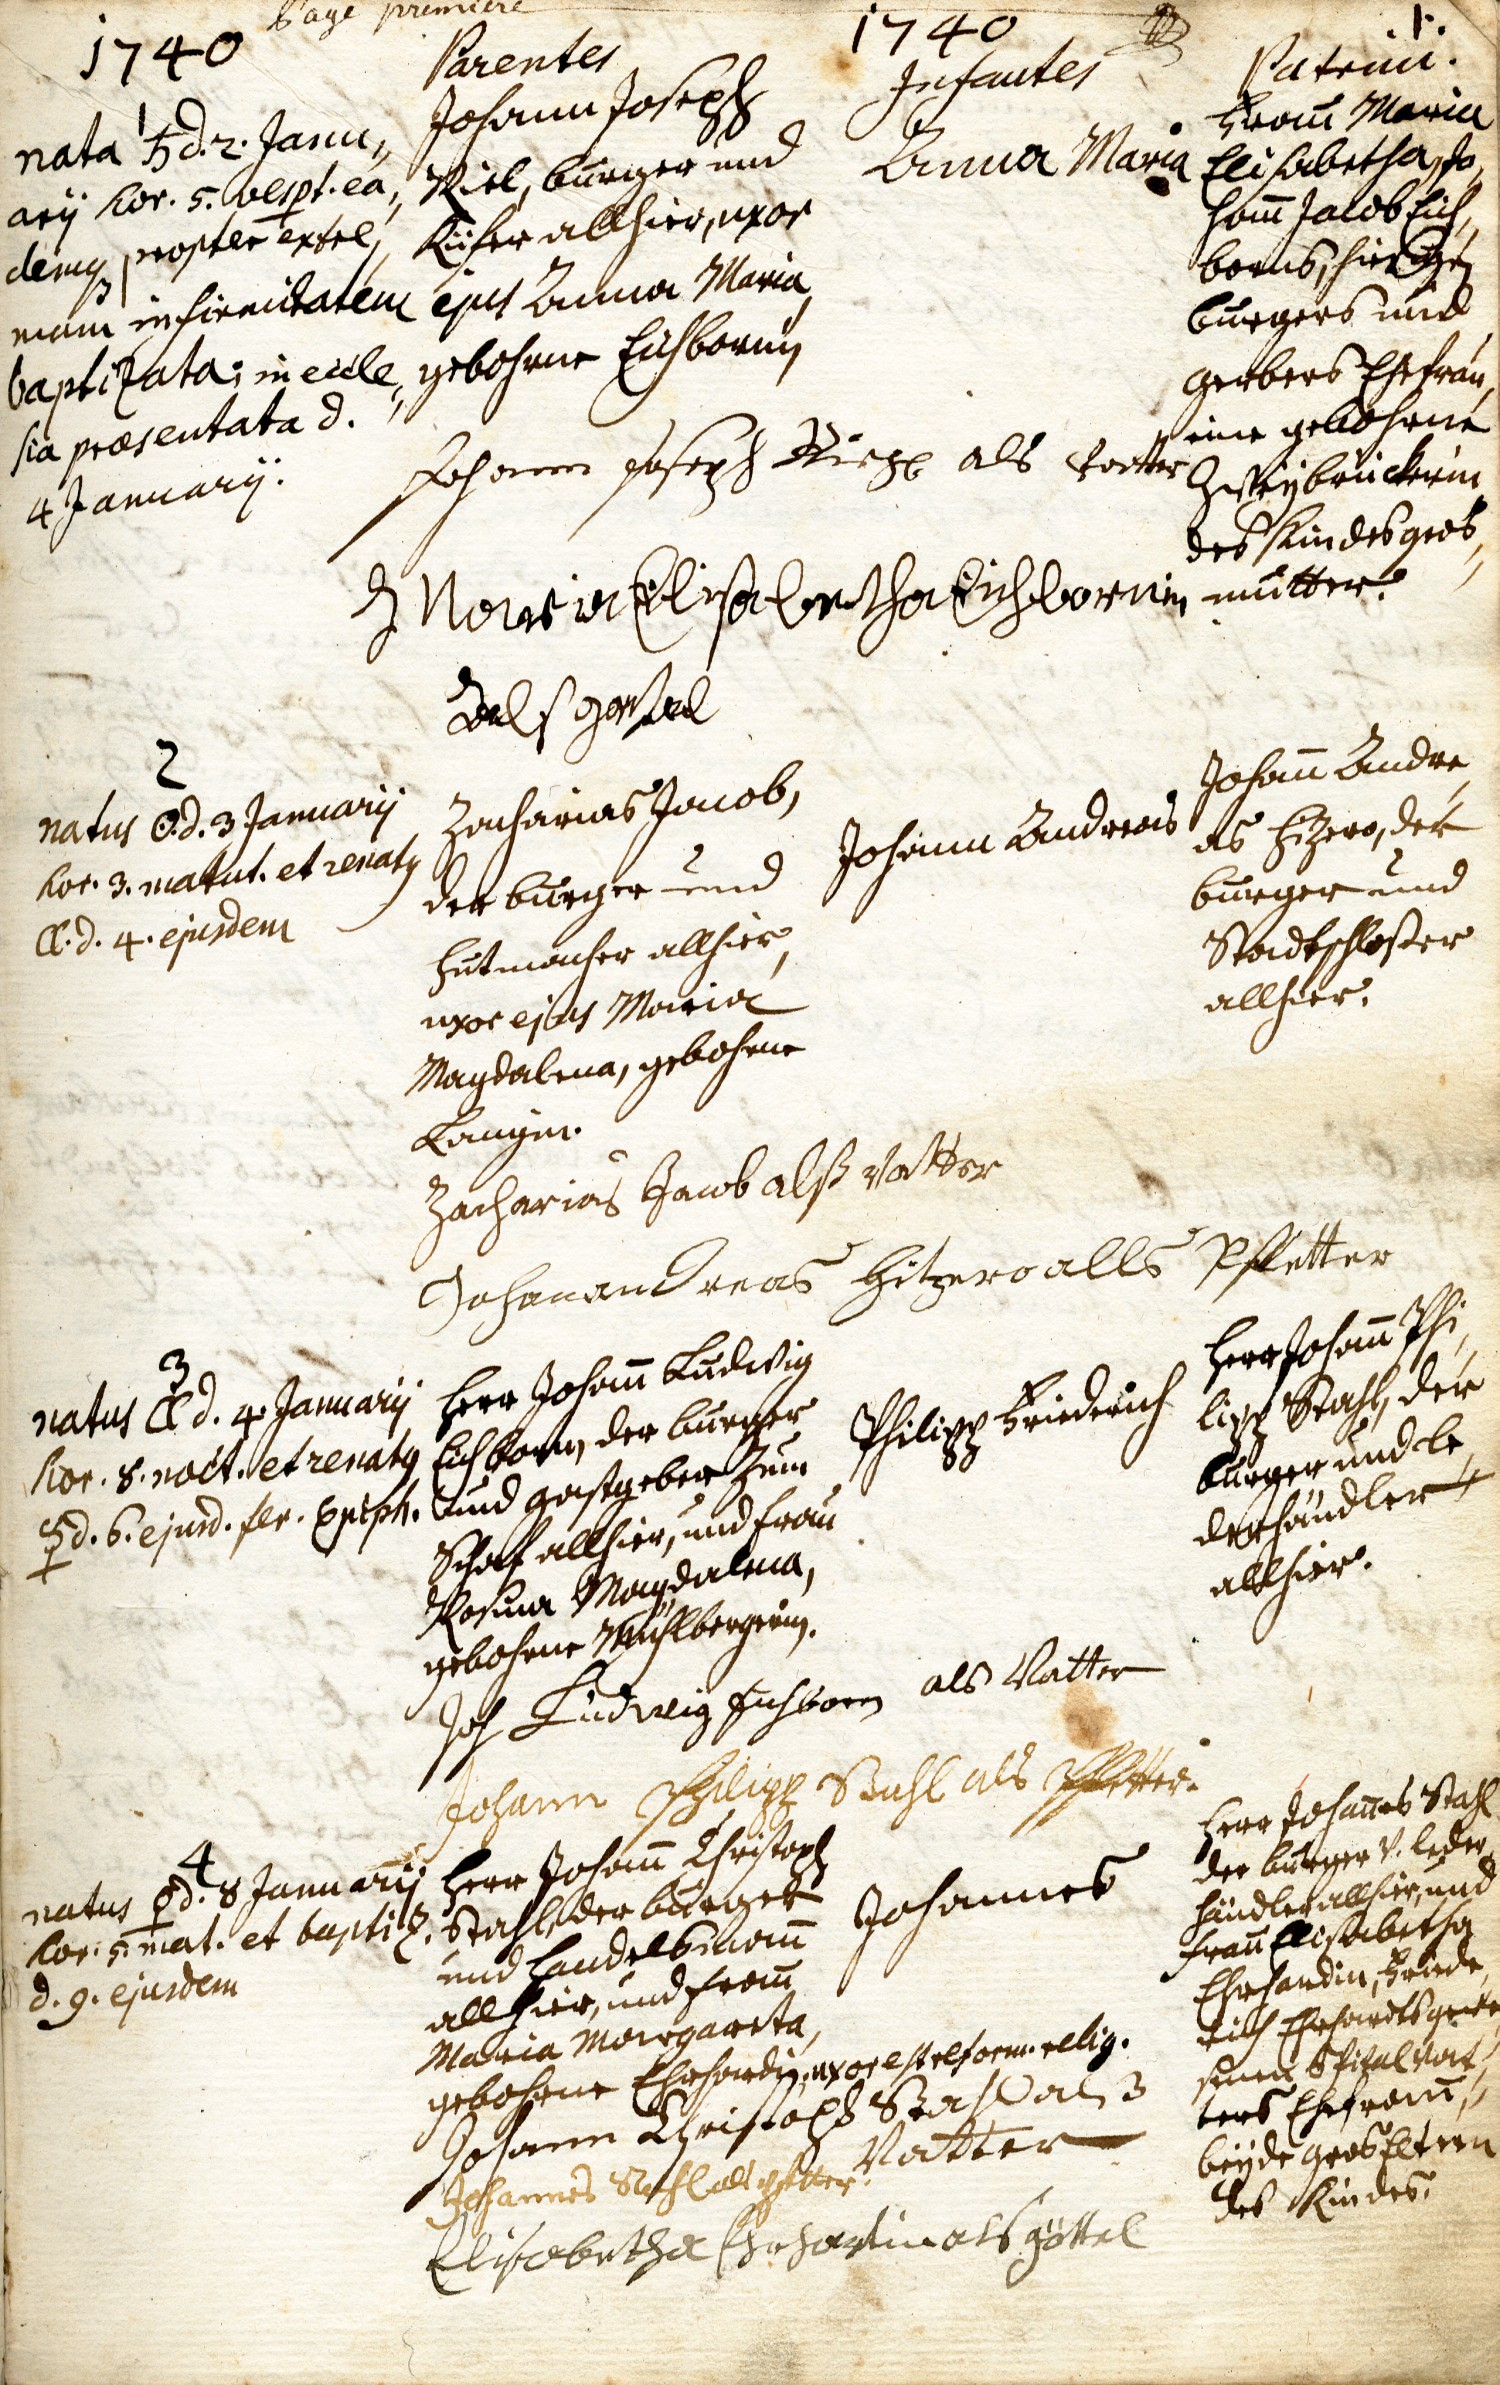 Page premiere
1740
Parentes
1740
Infantes
Patrini.
1.
1
nata ♄ d. 2. Janu,,
arij hor. 5. vespt. ea,,
demq propter extre,
mam infirmitatem
baptizata; in eccle,,
sia præsentata d.
4 Januarij.
Johann Joseph
Riel, burger und
Küfer allhier, uxor
ejus Anna Maria,
gebohrne Eichbornin
Anna Maria
Fraū Maria
Elisabetha, Jo,,
hañ Jacob Eich,,
borns, hiesigen
burgers und
gerbers Ehefrau,
eine gebohrne
Zweybrückerin
des Kindes gros,,
mutter.
Johann Joseph als Vatter
Maria Elisabetha Eichbornin
als gettel
2
natus ☉ d. 3 Januarij
hor. 3. matut. et renatq
☾. d. 4. ejusdem
Zacharias Jacob,
der burger und
hutmacher allhier,
uxor ejus Maria
Magdalena, gebohrne
Langin.
Johann Andreas
Johañ Andre,
as Hizero, der
burger und
Stadtschloßer
allhier.
Zacharias Jacob alß Vatter
Johanandreas Hitzero alls Pffetter
3
natus ☾ d. 4. Januarij
hor. 8. noct. et renatq
☿ d. 6. ejusd. fer. Epiph.
Herr Johañ Ludwig
Eichborn, der burger
und gastgeber zum
Schaf allhier, und Frau
Rosina Magdalena,
gebohrne Mühlbergerin.
Philipp Friederich
Herr Johañ Phi,
lipp Stahl, der
burger und le,
derhändler
allhier.
Joh Ludwig Eichborn als Vatter
Johann Philipp Stahl als Pfetter.
4
natus ♀ d. 8 Januarij
hor. 5. mat. et baptiz.
d. 9. ejusdem
Herr Johañ Christoph
Stahl, der burger
und handelsmañ
allhier, und Fraū
Maria Margareta,
gebohrne Ehrhardin, uxor est reform. relig.
Johannes
Herr Johañes Stahl
der burger v. leder,
händler allhier, und
Fraū Elisabetha
Ehrhardin, Friede,
rich Ehrhardts gewe,
senen Spitalvat,,
ters Ehefraū,
beyde grosEltern
des Kindes.
Johann Christoph Stahl als
Vatter
Johannes Stahl als pfetter.
Elisabetha Ehrhartin als göttel